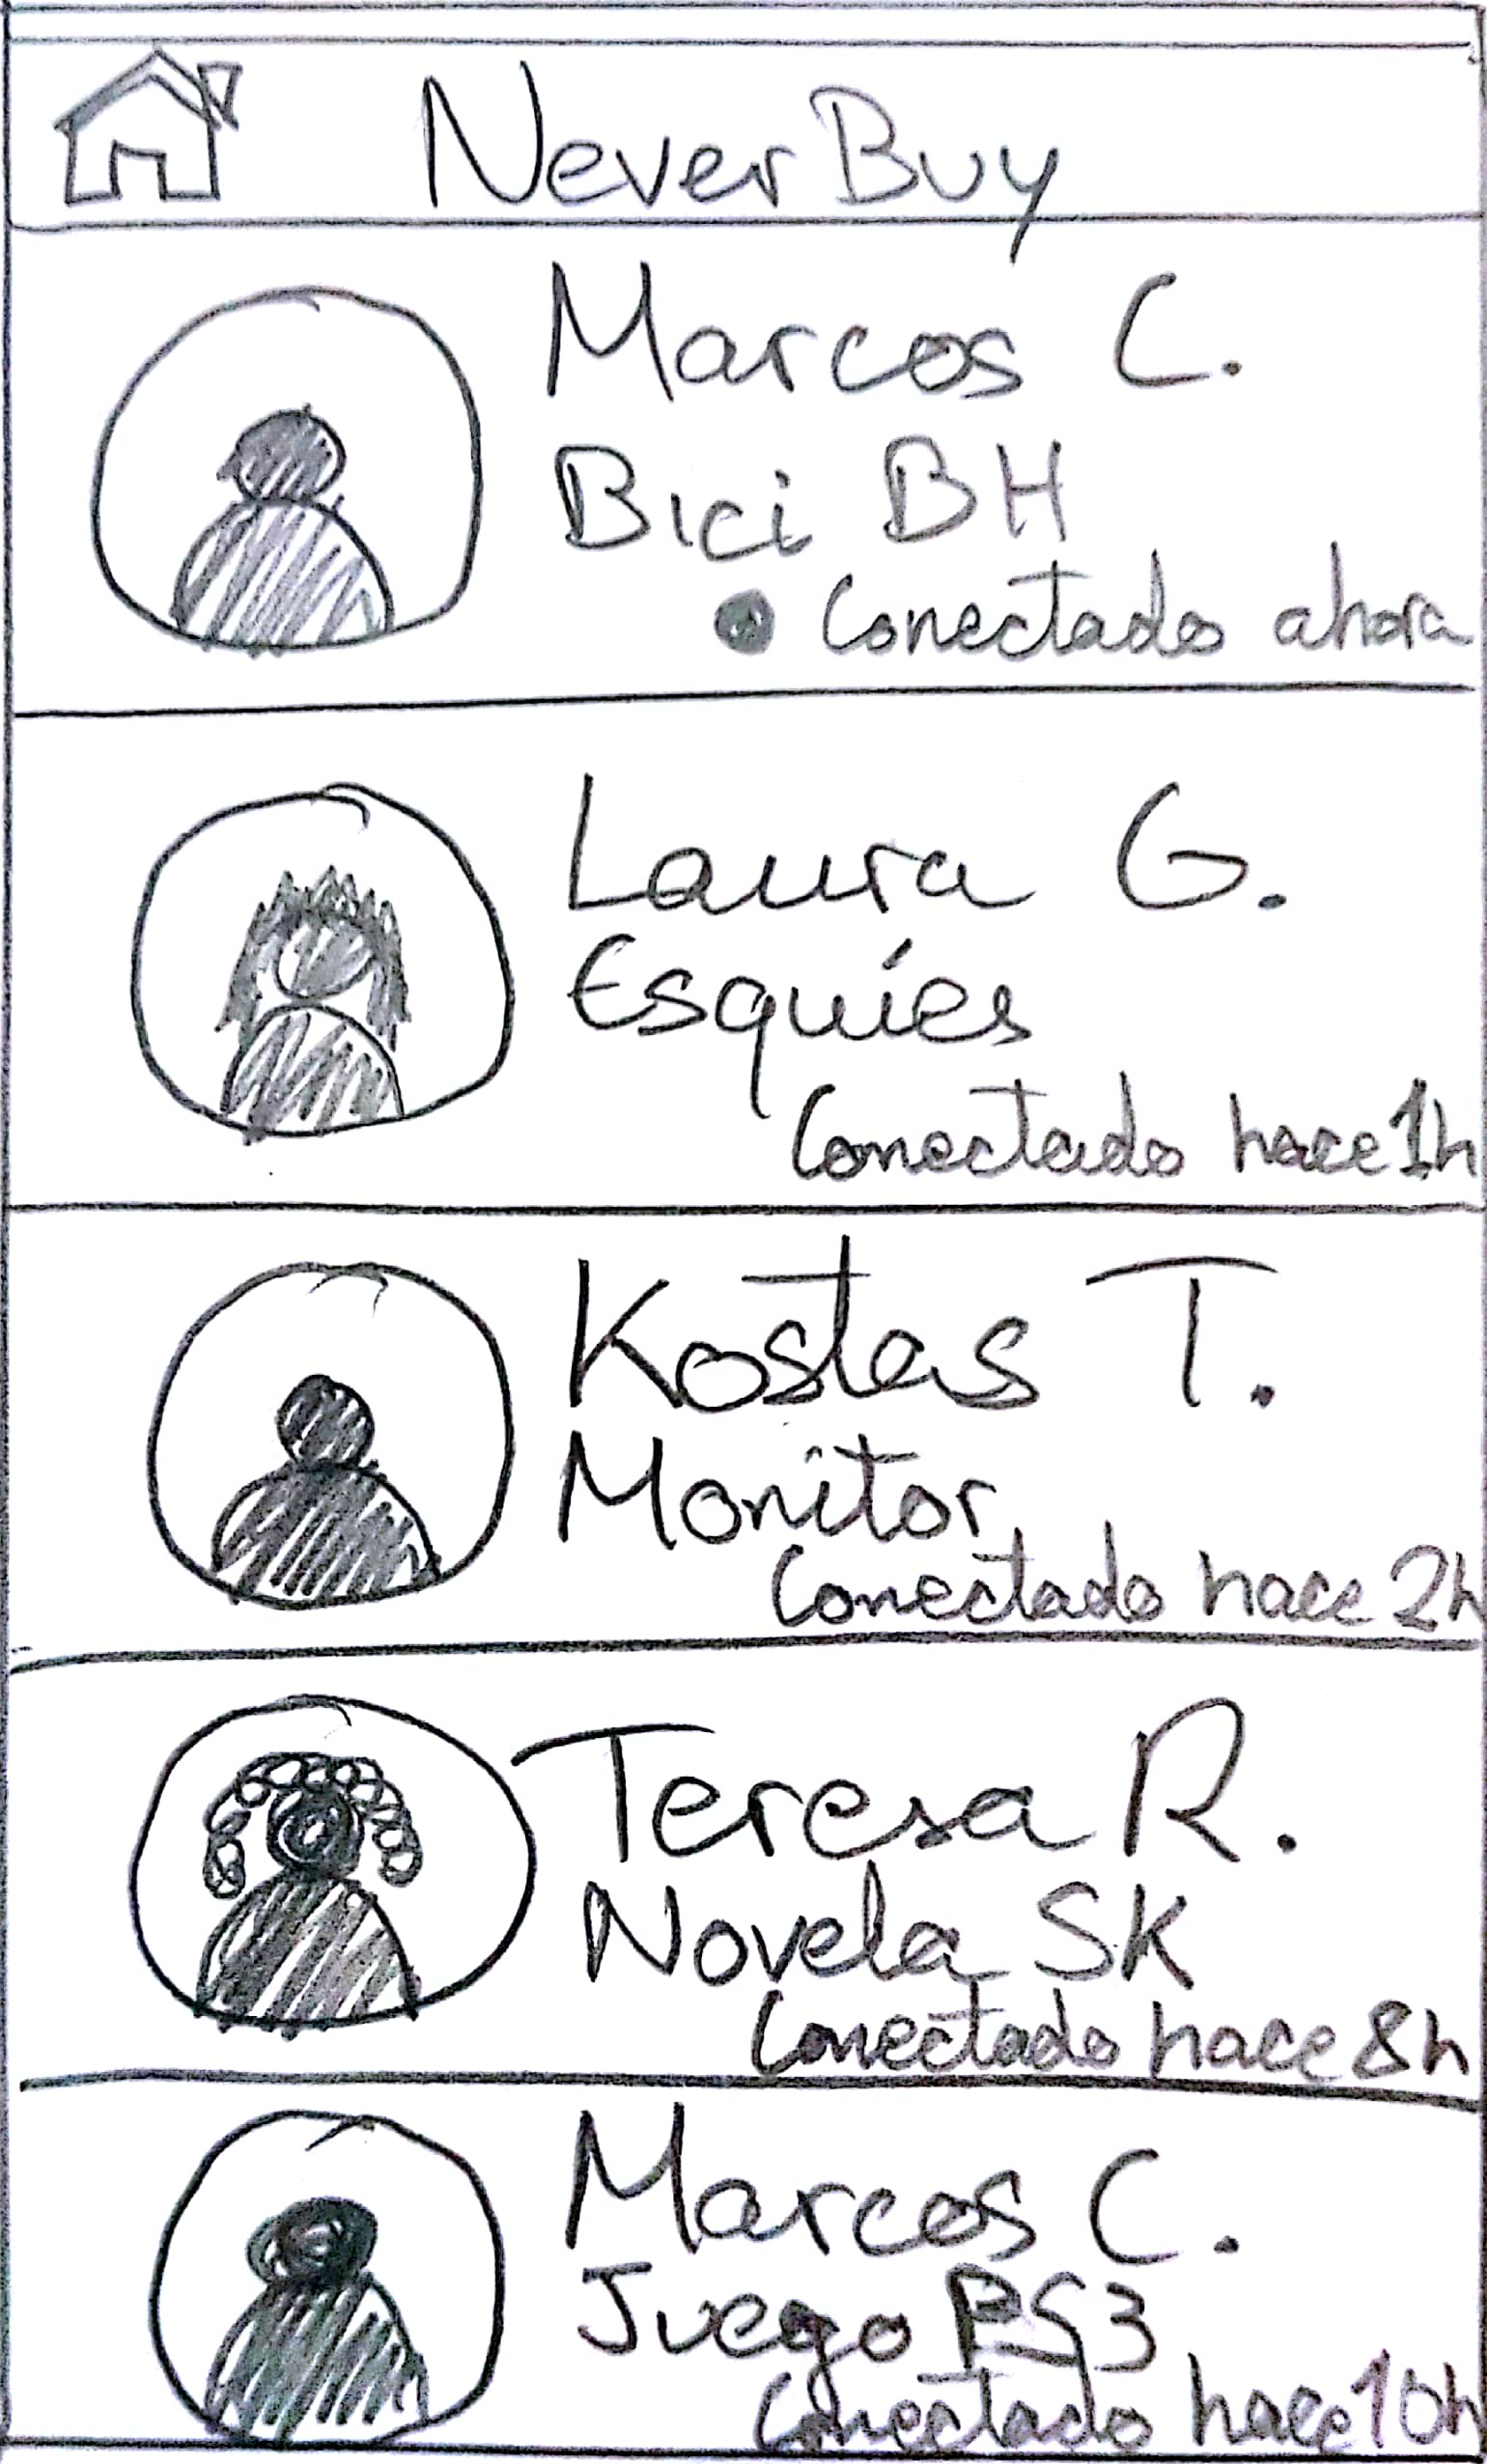 NeverBuy
Marcos C.
Bici BH
Conectado ahora
Laura G.
Esquíes
Conectado hace 1h
Kostas T.
Monitor
Conectado hace 2h
Teresa R.
Novela SK
Conectado hace 8h
Marcos C.
Juego PS3
Conectado hace 10h